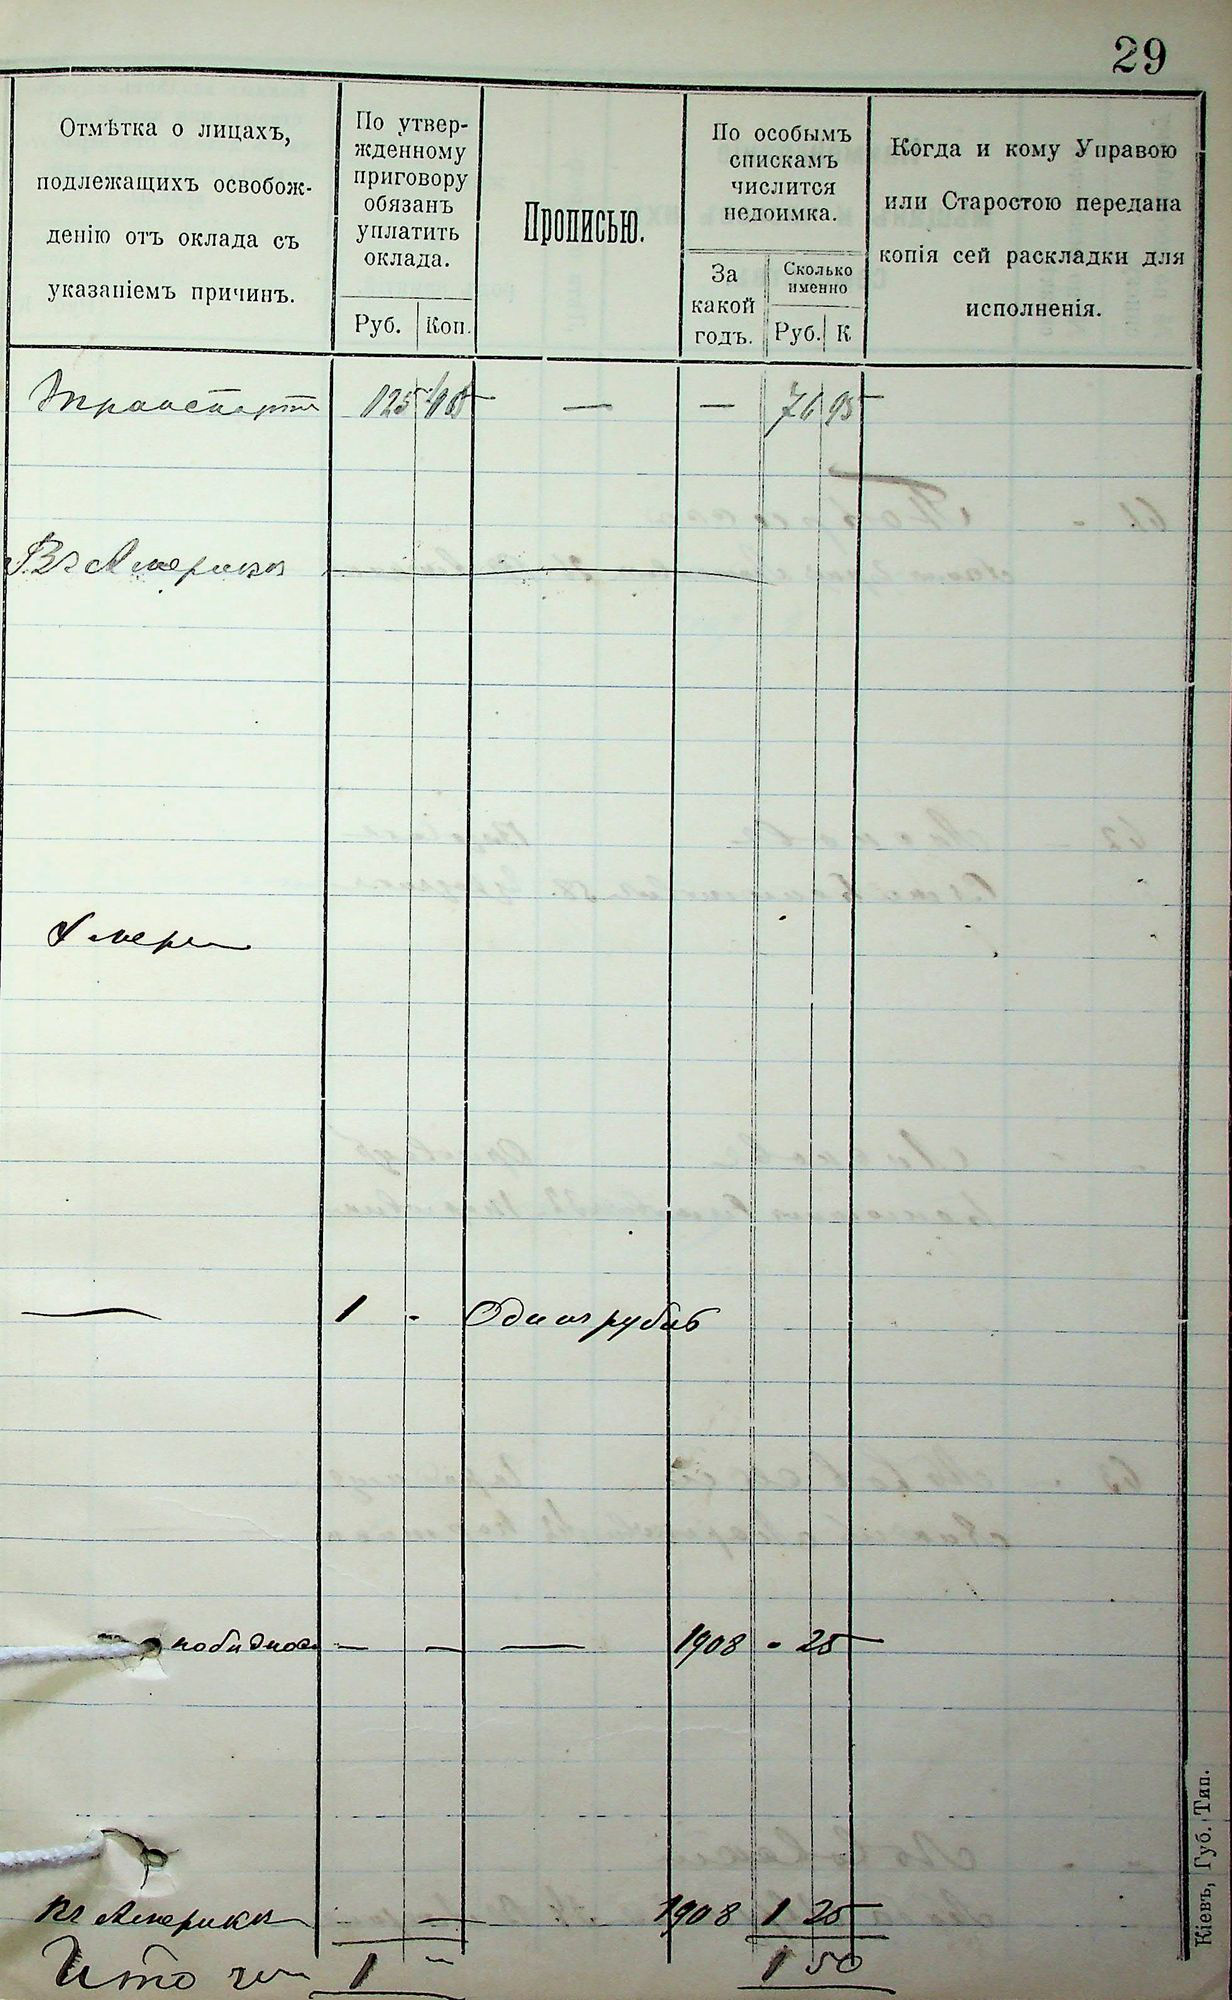 29
Отмѣтка о лицахъ,
подлежащихъ освобож-
денію отъ оклада съ
указаніемъ причинъ.
По утвер-
жденному
приговору
обязанъ
уплатить
оклада.
Руб. Коп.
Прописью.
По особымъ
спискамъ
числится
недоимка.
За
какой
годъ.
Сколько
именно
Руб. К
Когда и кому Управою
или Старостою передана
копія сей раскладки для
исполненія.
Транспортъ 125 — — 76 95
Въ Америкѣ
Умеръ
— 1 - Одинъ рубль
— — — 1908 - 25
Въ Америкѣ — 1908 1 25
Итого 1 — 1 50
Кіевъ, Губ. Тип.